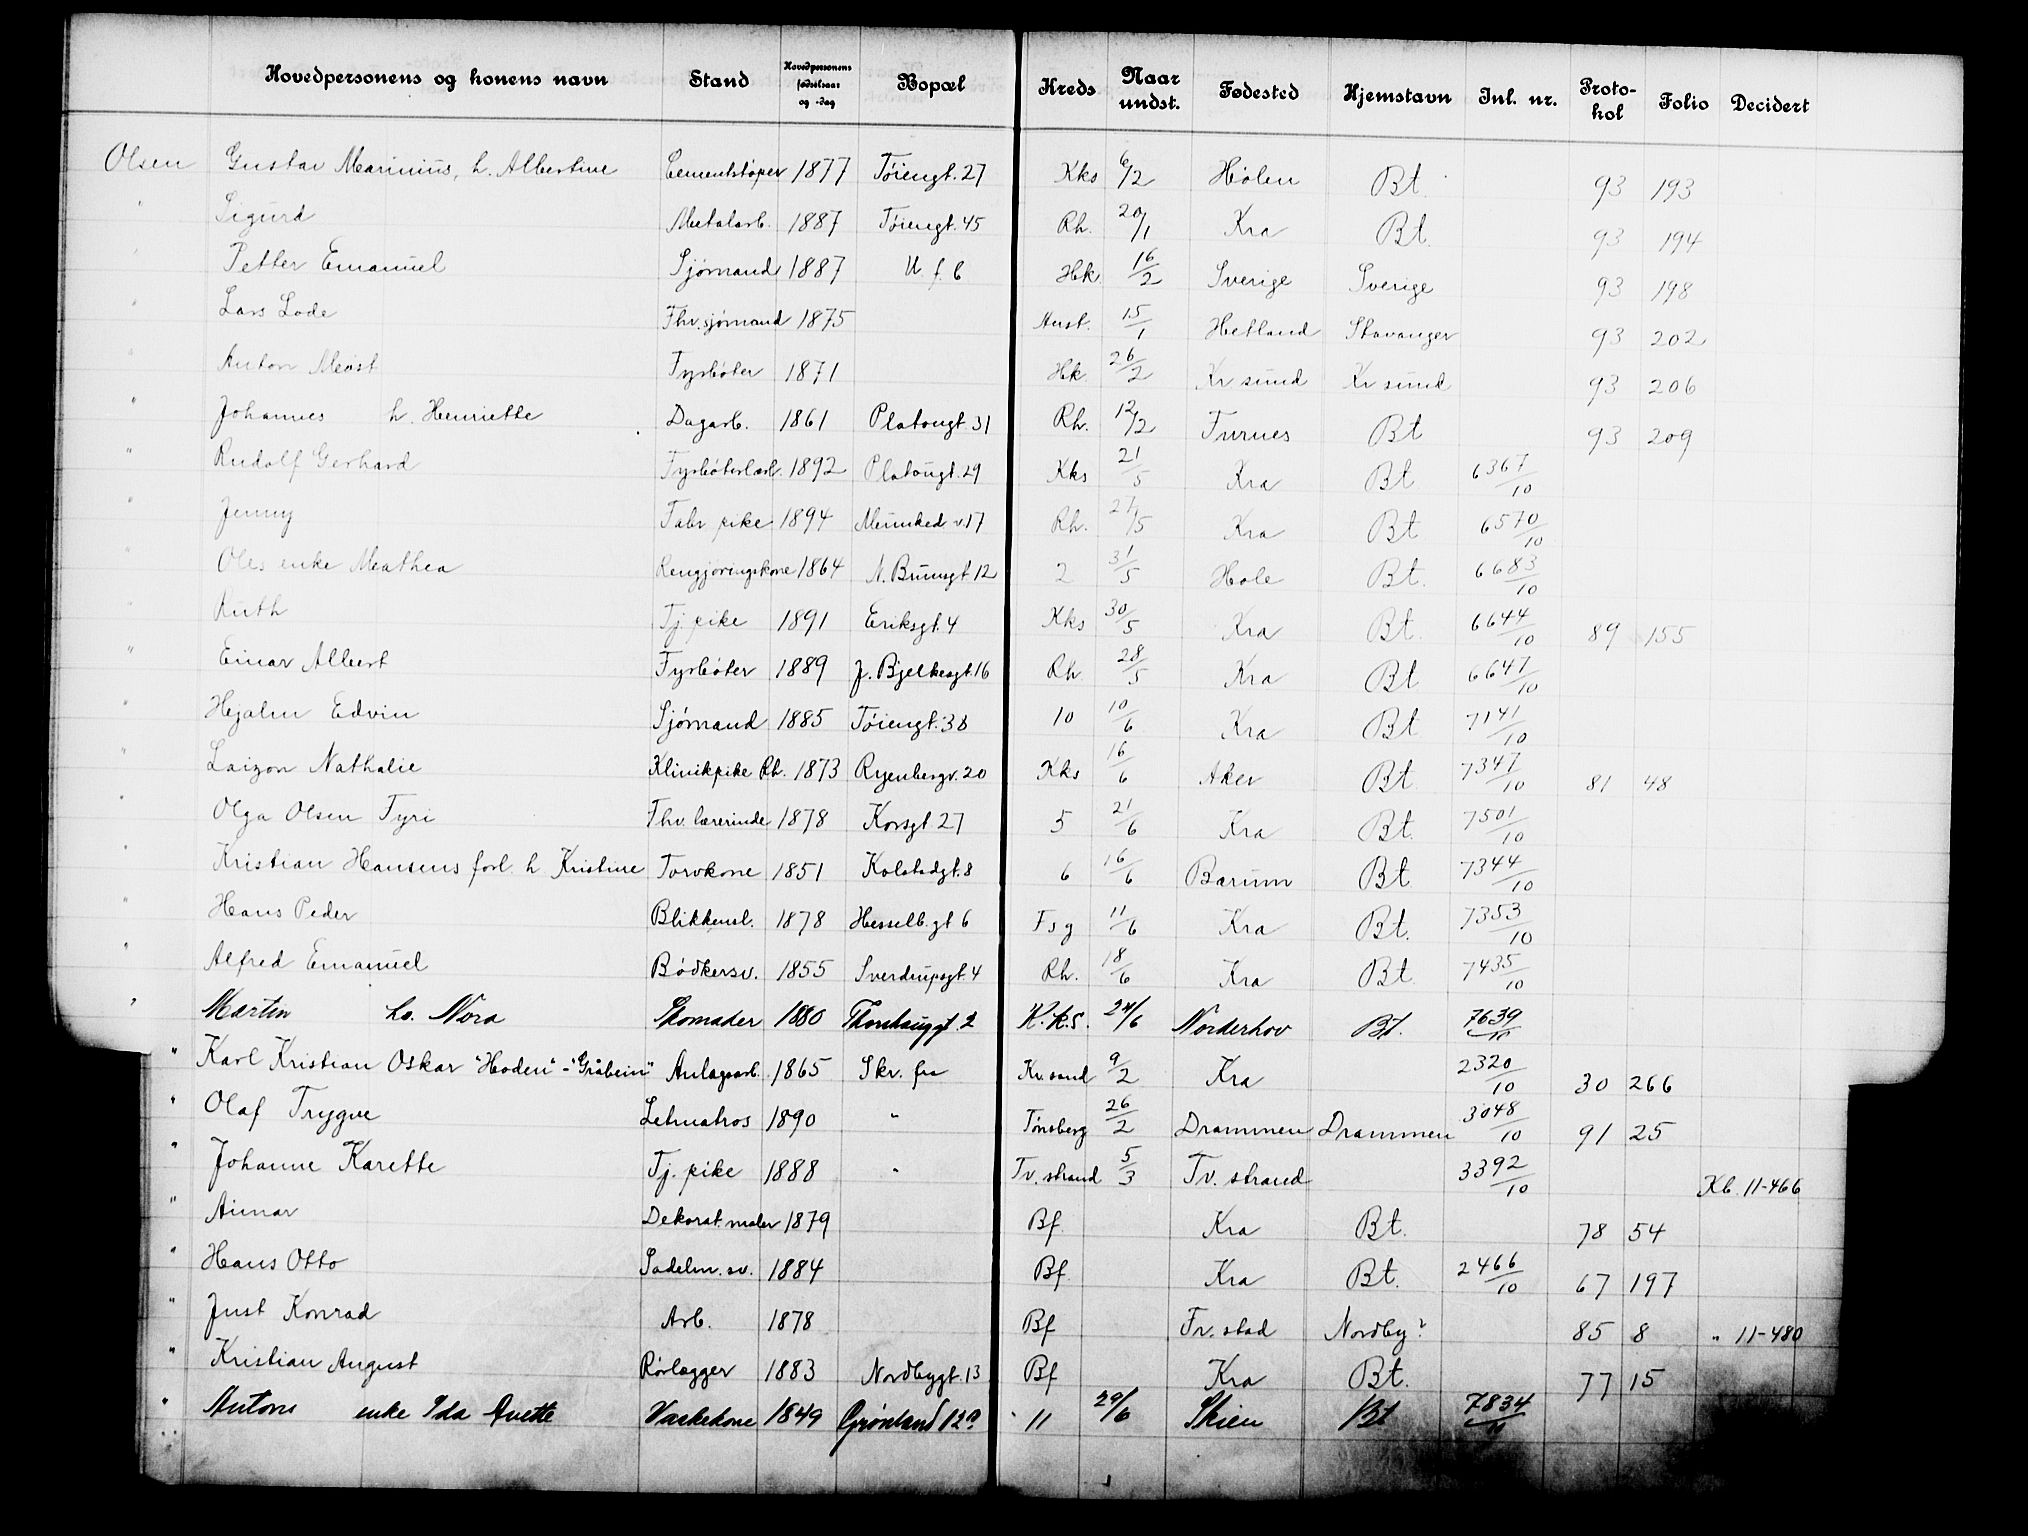 Hovedpersonens og konens navn | Stand | Hovedpersonens fødselsaar og -dag | Bopæl | Kreds | Naar undst. | Fødested | Hjemstavn | Inl. nr. | Protokol | Folio | Decidert
Olsen Gustav Marinius, h. Albertine | Cementstøper | 1877 | Tøiengt. 27 | Kks | 6/2 | Hølen | Bt. | 93 | 193
" Sigurd | Metalarb. | 1887 | Tøiengt. 45 | Rh. | 20/1 | Kra | Bt. | 93 | 194
" Petter Emanuel | Sjømand | 1887 | U. f. b | Hk | 16/2 | Sverige | Sverige | 93 | 198
" Lars Lode | Fhv. sjømand | 1875 | Anst. | 15/1 | Hetland | Stavanger | 93 | 202
" Anton | Fyrbøter | 1871 | Hk | 26/2 | Kr sund | Kr sund | 93 | 206
" Johannes h. Henriette | Dagarb. | 1861 | Platougt. 31 | Rh. | 12/2 | Furnes | Bt | 93 | 209
" Rudolf Gerhard | Fyrbøterlærl. | 1892 | Platougt. 29 | Kks | 21/5 | Kra | Bt | 6367/10
" Jenny | Fabr pike | 1894 | Munked v. 17 | Rh. | 27/5 | Kra | Bt | 6570/10
" Oles enke Mathea | Rengjøringskone | 1864 | N. Brunsgt 12 | 2 | 31/5 | Hole | Bt. | 6683/10
" Ruth | Tj. pike | 1891 | Eriksgt. 4 | Kks | 30/5 | Kra | Bt. | 6644/10 | 89 | 155
" Einar Albert | Fyrbøter | 1889 | J. Bjelkesgt. 16 | Rh | 28/5 | Kra | Bt | 6647/10
" Hjalm Edvin | Sjømand | 1885 | Tøiengt. 38 | 10 | 10/6 | Kra | Bt | 7141/10
" Laizon Nathalie | Klinikpike Rh. | 1873 | Ryenbergv. 20 | Kks | 16/6 | Aker | Bt. | 7347/10 | 81 | 48
" Olga Olsen Fyri | Fhv. lærerinde | 1878 | Korsgt. 27 | 5 | 21/6 | Kra | Bt. | 7501/10
" Kristian Hansens forl. h Kristine | Torvkone | 1851 | Kolstadgt. 8 | 6 | 16/6 | Bærum | Bt. | 7344/10
" Hans Peder | Blikkensl. | 1878 | Hesselb. gt 6 | Fsg | 11/6 | Kra | Bt. | 7353/10
" Alfred Emanuel | Bødkersv. | 1855 | Sverdrupsgt. 4 | Rh. | 18/6 | Kra | Bt. | 7435/10
" Martin h. Nora | Skomaker | 1880 | Thorshauggt. 2 | K.k.s. | 24/6 | Norderhov | Bt. | 7639/10
" Karl Kristian Oskar "Hoden" - "Gråbein" | Anlægsarb. | 1865 | Skr. fra | Kr. sand | 9/2 | Kra | 2320/10 | 30 | 266
" Olaf Trygve | Letmatros | 1890 | " | Tønsberg | 26/2 | Drammen | Drammen | 3048/10 | 91 | 25
" Johanne Karette | Tj. pike | 1888 | " | Tv. strand | 5/3 | Tv. strand | 3392/10 | Kb. 11-466
" Aimar | Dekorat. maler | 1879 | Bf. | Kra | Bt. | 78 | 54
" Hans Otto | Sadelm. sv. | 1884 | Bf. | Kra | Bt. | 2466/10 | 67 | 197
" Just Konrad | Arb. | 1878 | Bf | Fr. stad | Nordby? | 85 | 8 | " 11-480
" Kristian August | Rørlægger | 1883 | Nordbygt. 13 | Bf | Kra | Bt. | 77 | 15
" Antons enke Ida | Vaskekone | 1849 | Grønland 12a | 11 | 29/6 | Skien | Bt | 7834/10